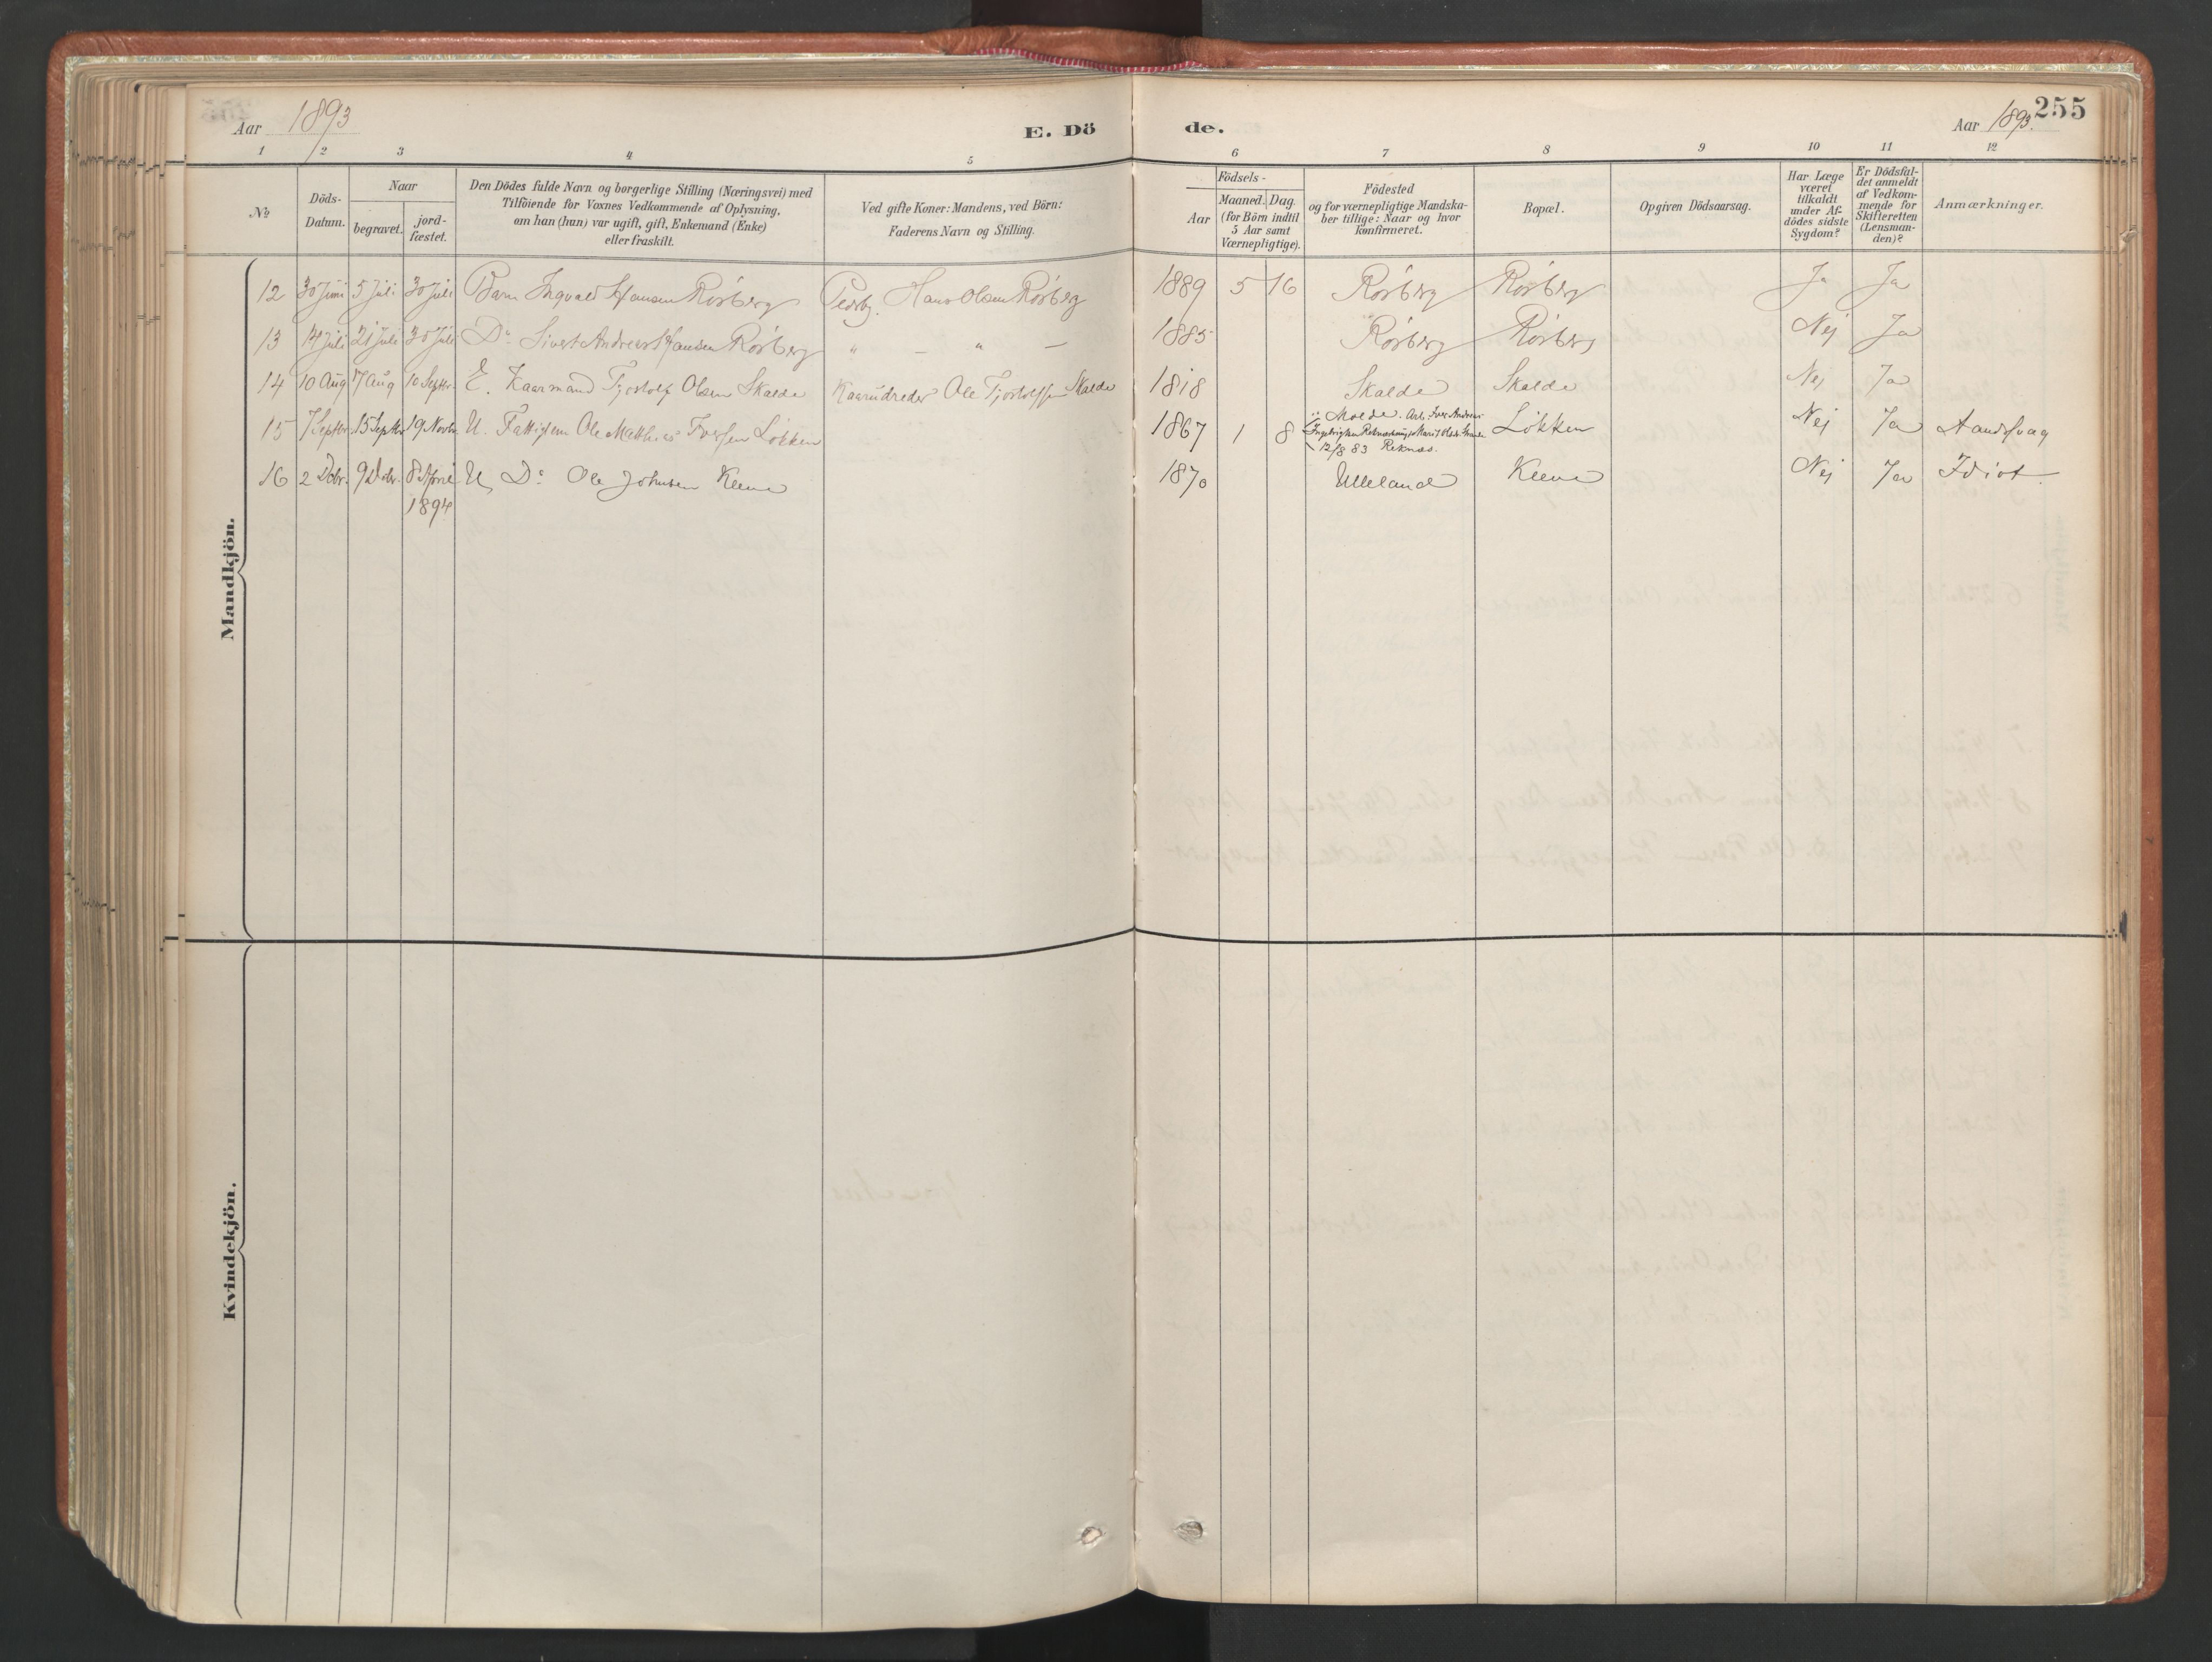 Aar 1893
E. Dö
de.
Aar 1893.
255
1 2 3 4 5 6 7 8 9 10 11 12
No
Döds-Datum.
Naar
begravet.
jord-fæstet.
Den Dödes fulde Navn og borgerlige Stilling (Næringsvei) med
Tilföiende for Voxnes Vedkommende af Oplysning,
om han (hun) var ugift, gift, Enkemand (Enke)
eller fraskilt.
Ved gifte Koner: Mandens, ved Börn:
Faderens Navn og Stilling.
Födsels-
Aar
Maaned. Dag.
(for Börn indtil
5 Aar samt
Værnepligtige).
Födested
og for værnepligtige Mandska-
ber tillige: Naar og hvor
konfirmeret.
Bopæl.
Opgiven Dödsaarsag.
Har Læge
været
tilkaldt
under Af-
dödes sidste
Sygdom?
Er Dödsfal-
det anmeldt
af Vedkom-
mende for
Skifteretten
(Lensman-
den)?
Anmærkninger.
Mandkjön.
12 30 Juni 5 Juli 30 Juli Barn Ingvald Hansen Rösberg Pladsbr. Hans Olsen Rösberg 1889 5 16 Rösberg Rösberg Ja Ja
13 14 Juli 21 Juli 30 Juli Do Sivert Andreas Hansen Rösberg " — " — 1885 Rösberg Rösberg Nej Ja
14 10 Aug 17 Aug 10 Septbr. E. Kaarmand Tjostolf Olsen Skalde Kaarudreder Ole Tjostolfsen Skalde 1818 Skalde Skalde Nej Ja
15 7 Septbr. 15 Septbr 19 Novbr. U. Fattiglem Ole Matthias Iversen Lökken 1867 1 8 Molde. Arb. Iver Andreas
Ingebrigtsen 12/8 83 Reknæs. Lökken Nej Ja Aandssvag
16 2 Decbr. 9 Decbr. 8 April
1894 U. Do Ole Johnsen Kleve 1870 Ulleland Kleve Nej Ja Idiot
Kvindekjön.